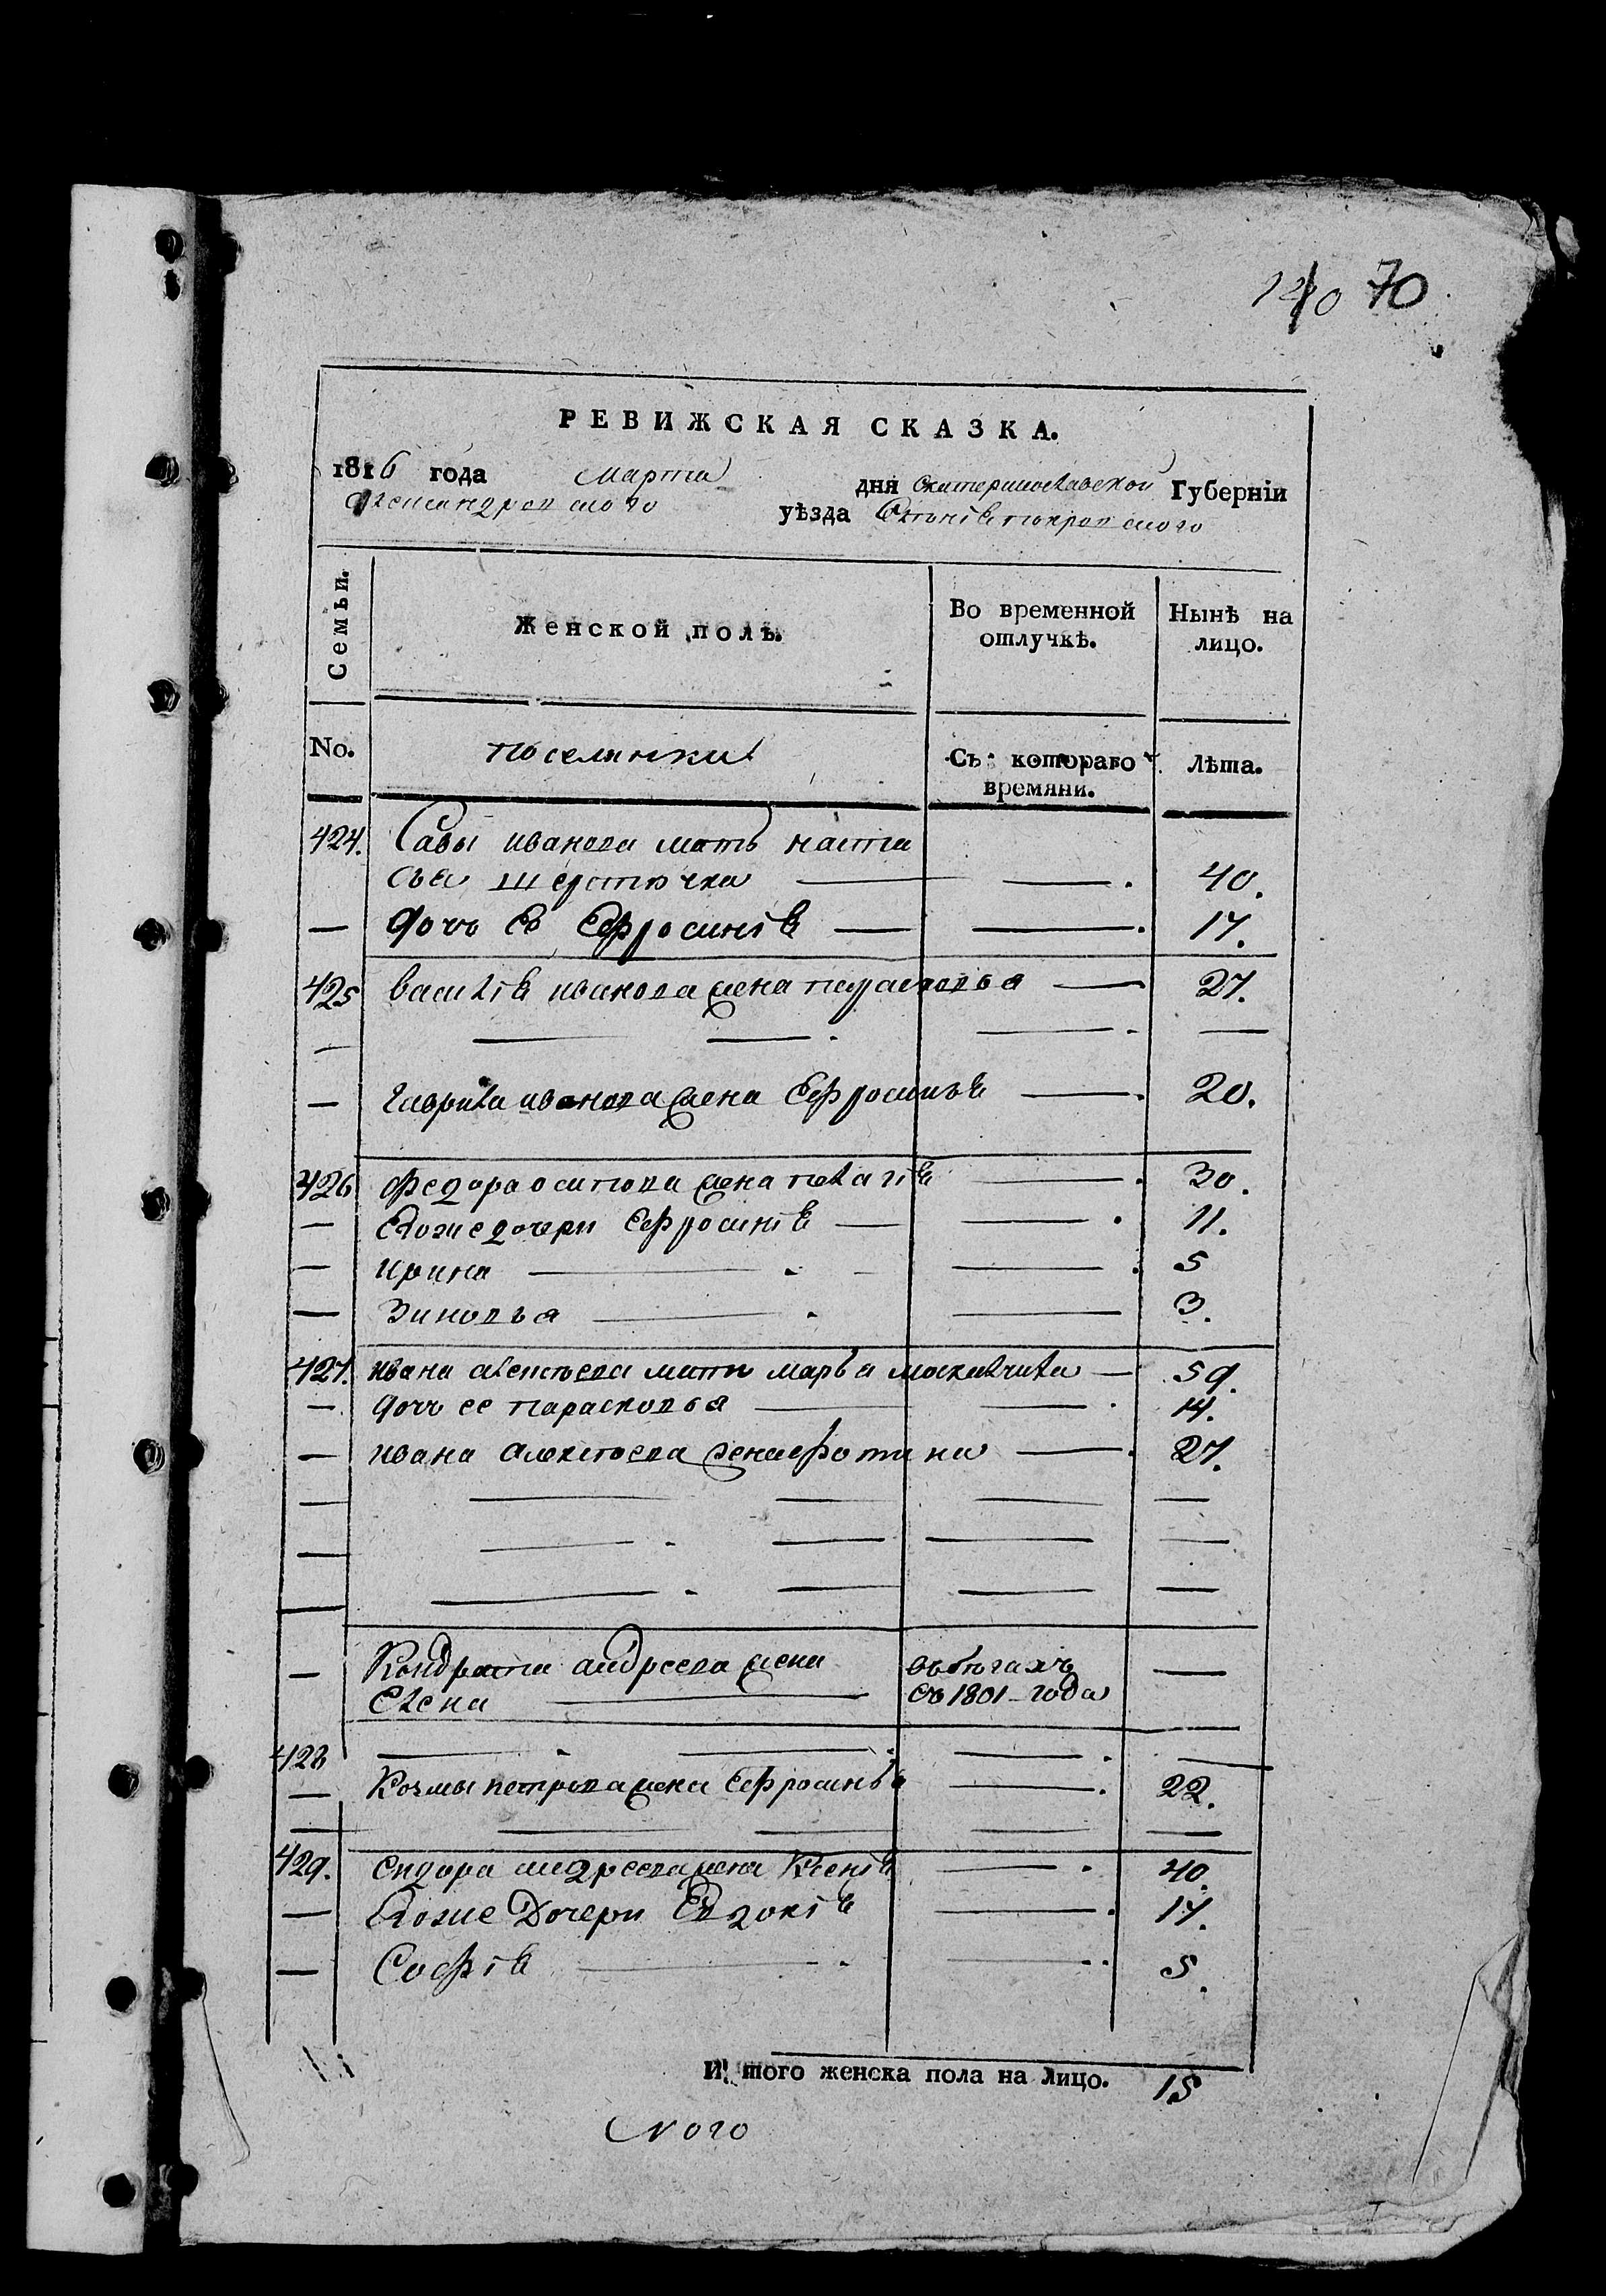 70
РЕВИЖСКАЯ СКАЗКА.
1816 года марта дня Екатеринославской Губерніи
Александровского уѣзда
Семьи.
Женской полъ.
Во временной отлучкѣ.
Нынѣ на лицо.
No.
поселянки
Съ котораго времяни.
Лѣта.
424. Савы иванова мать наста
сья 40.
— дочь ее Ефросинія — 17.
425 василія иванова жена парасковья — 27.
— гаврила иванова жена Ефросинья — 20.
426 федора осипова жена пелагія — 30.
— Евоже дочери Ефросинія — 11.
— ирина — 5
— Зиновья — 3.
427. ивана алексѣева мать марья — 59.
— дочь ее парасковья — 14.
— ивана алексѣева жена фотина — 27.
— Кондрата андреева жена въ бѣгахъ —
Елена — съ 1801 года
428
— Козмы петрова жена Ефросинья — 22.
429. Сидора андреева жена Ксенія — 40.
— Евоже Дочери Евдокія — 17.
— Софія — 5.
И того женска пола на лицо. 15